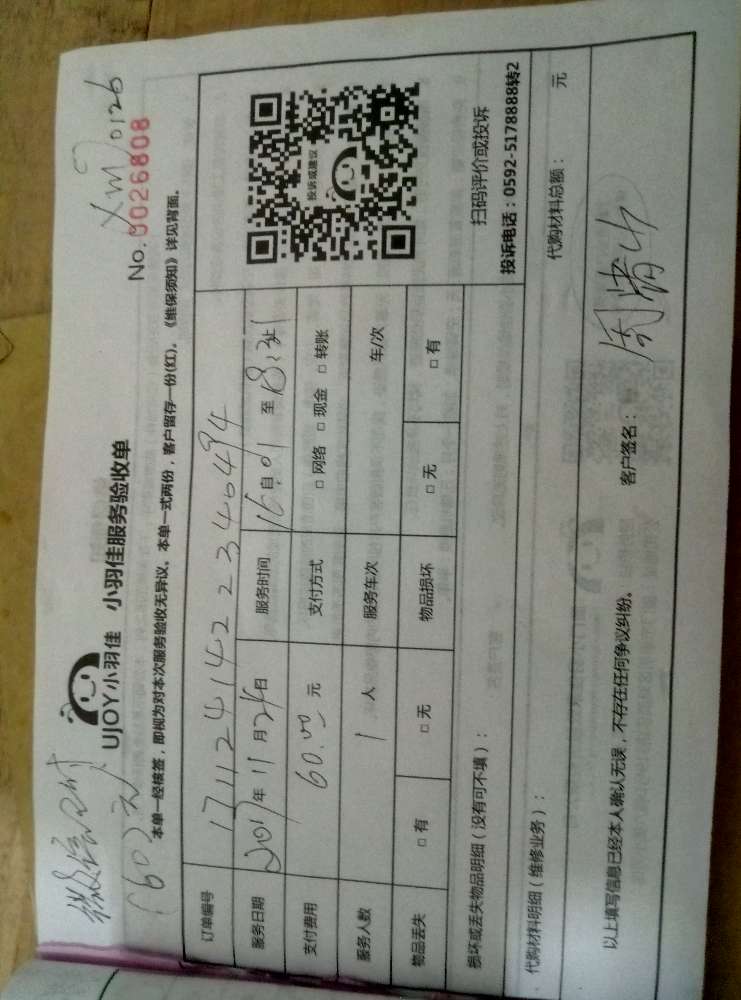 微信支付 xm0126
(60元) No.0026808
UJOY小羽佳 小羽佳服务验收单
本单一经核签，即视为对本次服务验收无异议。本单一式两份，客户留存一份(红)。《维保须知》详见背面。
订单编号 171124142234b494
服务日期 2017年11月24日 服务时间 16:01至18:31
支付费用 60.00元 支付方式 □网络 □现金 □转账
服务人数 1人 服务车次 车/次
物品丢失 □有 □无 物品损坏 □无 □有
投诉或建议
扫码评价或投诉
投诉电话：0592-5178888转2
损坏或丢失物品明细（没有可不填）：
代购材料明细（维修业务）： 代购材料总额： 元
以上填写信息已经本人确认无误，不存在任何争议纠纷。 客户签名：